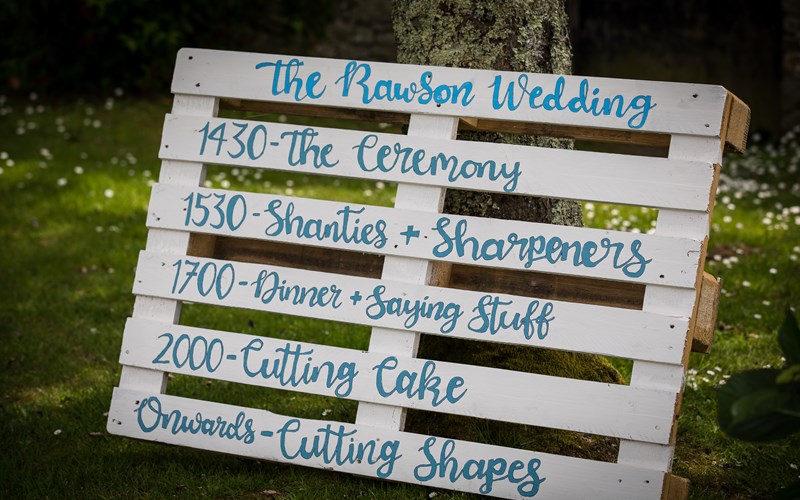 The Rawson Wedding
1430-The Ceremony
1530-Shanties + Sharpeners
1700-Dinner + Saying Stuff
2000-Cutting Cake
Onwards-Cutting Shapes